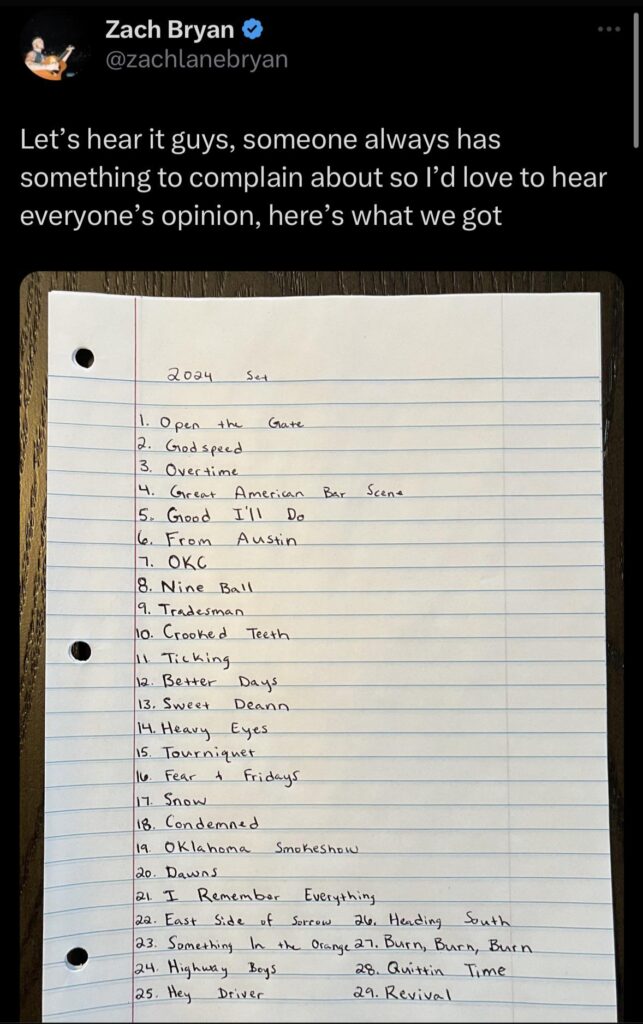 Zach Bryan
@zachlanebryan
Let's hear it guys, someone always has
something to complain about so I'd love to hear
everyone's opinion, here's what we got
2024 Set
1. Open the Gate
2. Godspeed
3. Overtime
4. Great American Bar Scene
5. Good I'll Do
6. From Austin
7. OKC
8. Nine Ball
9. Tradesman
10. Crooked Teeth
11. Ticking
12. Better Days
13. Sweet Deann
14. Heavy Eyes
15. Tourniquet
16. Fear & Fridays
17. Snow
18. Condemned
19. Oklahoma Smokeshow
20. Dawns
21. I Remember Everything
22. East Side of Sorrow 26. Heading South
23. Something In the Orange 27. Burn, Burn, Burn
24. Highway Boys 28. Quittin Time
25. Hey Driver 29. Revival